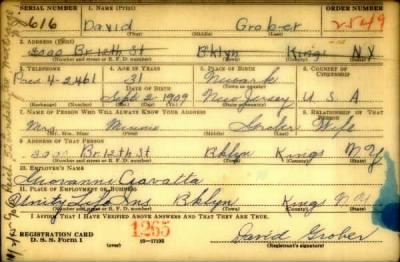 SERIAL NUMBER 1. NAME (Print) ORDER NUMBER
616 David Grober 2549
(First) (Middle) (Last)
2. ADDRESS (Print)
3000 Br 12th St Bklyn Kings N.Y.
(Number and street or R. F. D. number) (Town) (County) (State)
3. TELEPHONE 4. AGE IN YEARS 5. PLACE OF BIRTH 6. COUNTRY OF CITIZENSHIP
4-2461 31 Newark
DATE OF BIRTH (Town or county)
Sept 2 1909 New Jersey U S A
(Exchange) (Number) (Mo.) (Day) (Yr.) (State or country)
7. NAME OF PERSON WHO WILL ALWAYS KNOW YOUR ADDRESS 8. RELATIONSHIP OF THAT PERSON
Mrs. Minnie Grober Wife
(Mr., Mrs., Miss) (First) (Middle) (Last)
9. ADDRESS OF THAT PERSON
3000 Br 12th St Bklyn Kings N.Y.
(Number and street or R. F. D. number) (Town) (County) (State)
10. EMPLOYER'S NAME
Giovanni Ciavatta
11. PLACE OF EMPLOYMENT OR BUSINESS
Unity Life Ins Bklyn Kings N.Y.
(Number and street or R. F. D. number) (Town) (County) (State)
I AFFIRM THAT I HAVE VERIFIED ABOVE ANSWERS AND THAT THEY ARE TRUE.
REGISTRATION CARD 1265 David Grober
D. S. S. Form 1 16-17105 (Registrant's signature)